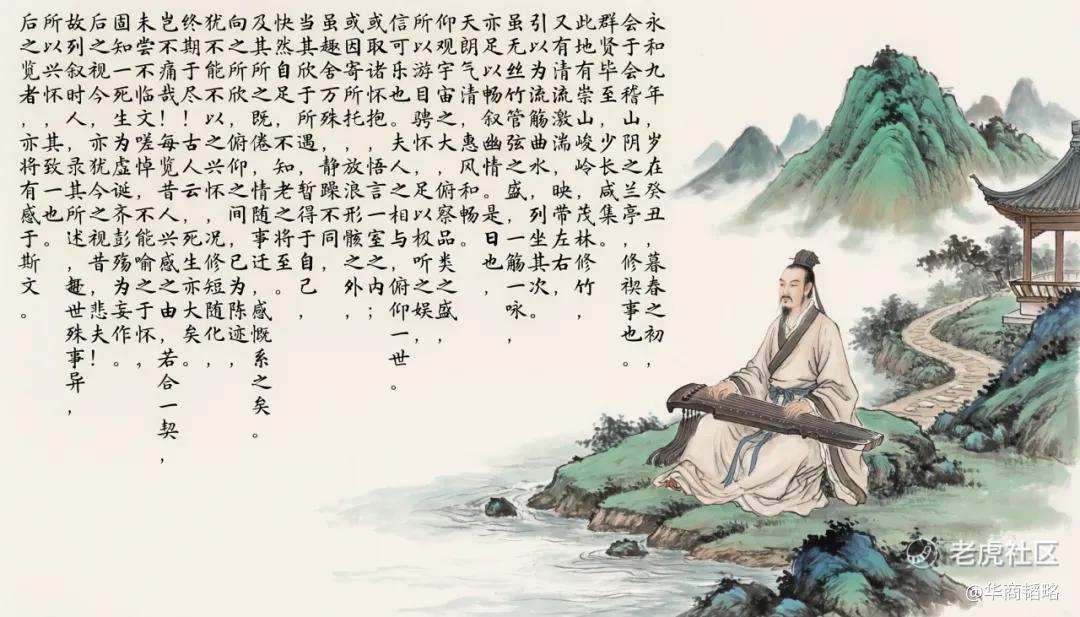 永和九年，岁在癸丑，暮春之初，
会于会稽山阴之兰亭，修禊事也。
群贤毕至，少长咸集。
此地有崇山峻岭，茂林修竹，
又有清流激湍，映带左右，
引以为流筋曲水，列坐其次，
虽无丝竹管弦之盛，一筋一咏，
亦足以畅叙幽情。是日也，
天朗气清，惠风和畅。
仰观宇宙之大，俯察品类之盛，
所以游目骋怀，足以极听之娱，
信可乐也。夫人之相与，俯仰一世。
或取诸怀抱，悟言一室之内；
或因寄所托，放浪形骸之外，
虽趣舍万殊，静躁不同，
当其欣于所遇，暂得于自己，
快然自足，不知老之将至。
及其所之既倦，情随事迁，感慨系之矣。
向之所欣，俯仰之间，已为陈迹，
犹不能不以之兴怀，况修短随化，
终期于尽！古云，死生亦大矣。
岂不痛哉！每览昔人兴感之由，若合一契，
未尝不临文嗟悼，不能喻之于怀，
固知一死生为虚诞，齐彭殇为妄作。
后之视今，亦犹今之视昔，悲夫！
故列叙时人，录其所述，趣世殊事异，
所以兴怀，其致一也。
后之览者，亦将有感于斯文。
老虎社区
@华商韬略